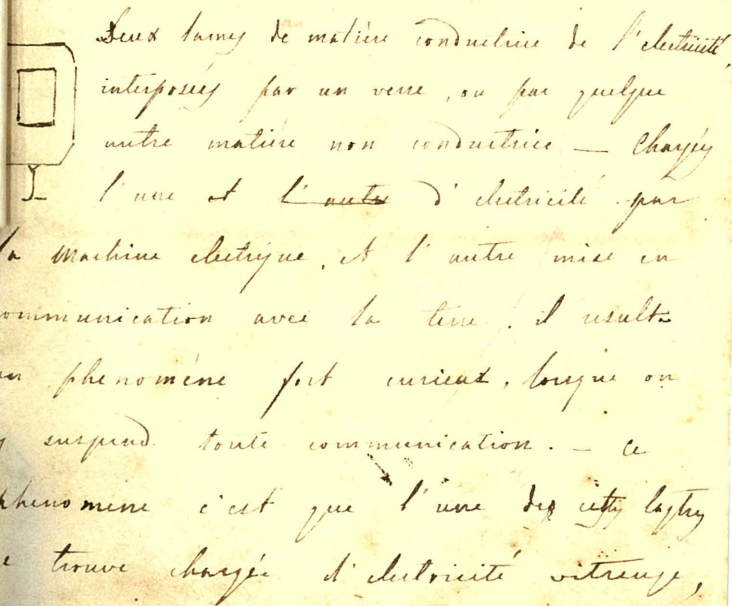 Deux lames de matière conductrice de l'electricité,
interposées par un verre, ou par quelque
autre matière non conductrice — Chargés
l'une et l'autre d'electricité par
la machine electrique, et l'autre mise en
communication avec la terre, il resulte
un phenomène fort curieux, lorsque on
y suspend toute communication. — Ce
phenomène c'est que l'une des
se trouve chargée d'electricité vitreuse,